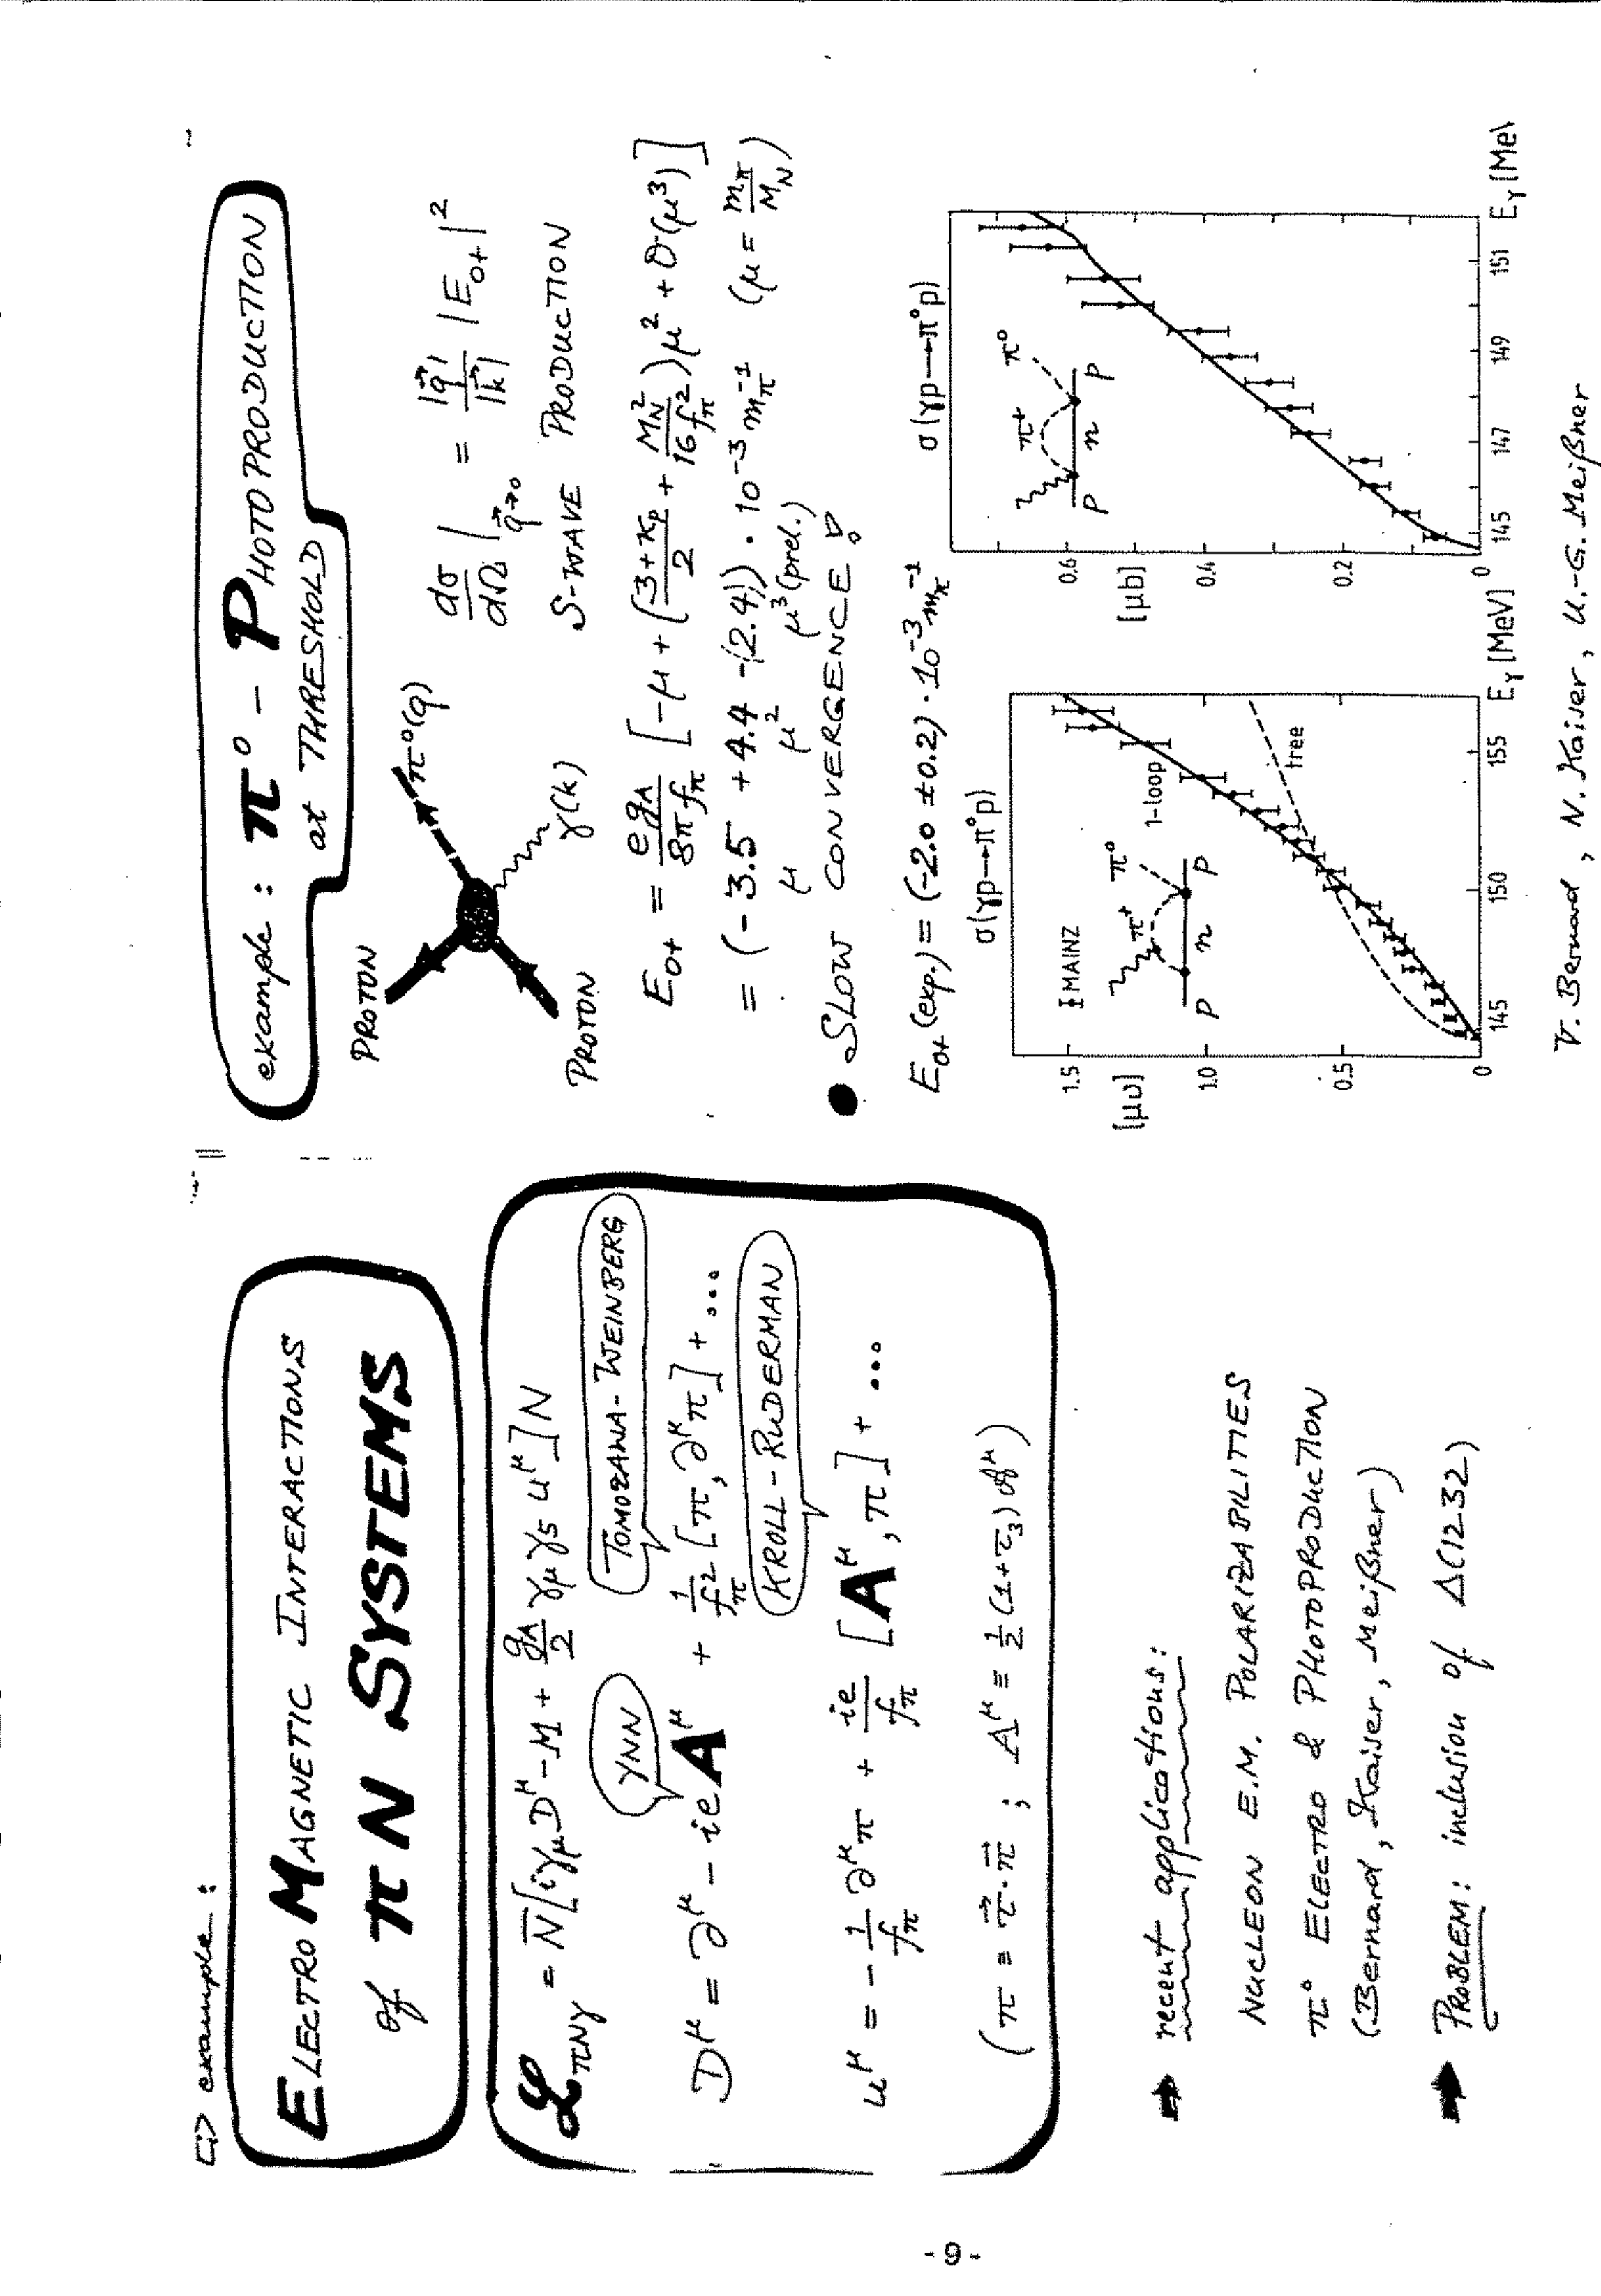 ⇨ example :
ELECTROMAGNETIC INTERACTIONS
of πN SYSTEMS
ℒ_πNγ = N̄[iγ_μ D^μ - M + g_A/2 γ_μ γ_5 u^μ]N
γNN
TOMOZAWA-WEINBERG
D^μ = ∂^μ - ie A^μ + 1/f_π^2 [π, ∂^μ π] + ...
KROLL-RUDERMAN
u^μ = - 1/f_π ∂^μ π + ie/f_π [A^μ, π] + ...
(π = τ⃗·π⃗ ; A^μ ≡ ½(1+τ_3) 𝒜^μ)
➡ recent applications:
NUCLEON E.M. POLARIZABILITIES
π° ELECTRO & PHOTOPRODUCTION
(Bernard, Kaiser, Meißner)
➡ PROBLEM: inclusion of Δ(1232)
example : π° - PHOTOPRODUCTION
at THRESHOLD
PROTON
π°(q)
PROTON
γ(k)
dσ/dΩ |_q⃗→0 = |q⃗|/|k⃗| |E_0+|^2
S-WAVE PRODUCTION
E_0+ = e g_A/8π f_π [-μ + (3+κ_p/2 + M_N^2/16 f_π^2) μ^2 + O(μ^3)]
= (-3.5 + 4.4 -(2.4)) · 10^-3 m_π^-1 (μ = m_π/M_N)
μ μ^2 μ^3 (prel.)
● SLOW CONVERGENCE !
E_0+ (exp.) = (-2.0 ± 0.2) · 10^-3 m_π^-1
σ(γp→π°p)
MAINZ
1.5
[μb]
1.0
0.5
0
π+
π°
P
n
P
1-loop
tree
145 150 155 E_γ [MeV]
σ(γp→π°p)
0.6
[μb]
0.4
0.2
0
π+
π°
P
n
P
145 147 149 151 E_γ [MeV
V. Bernard, N. Kaiser, U.-G. Meißner
- 9 -